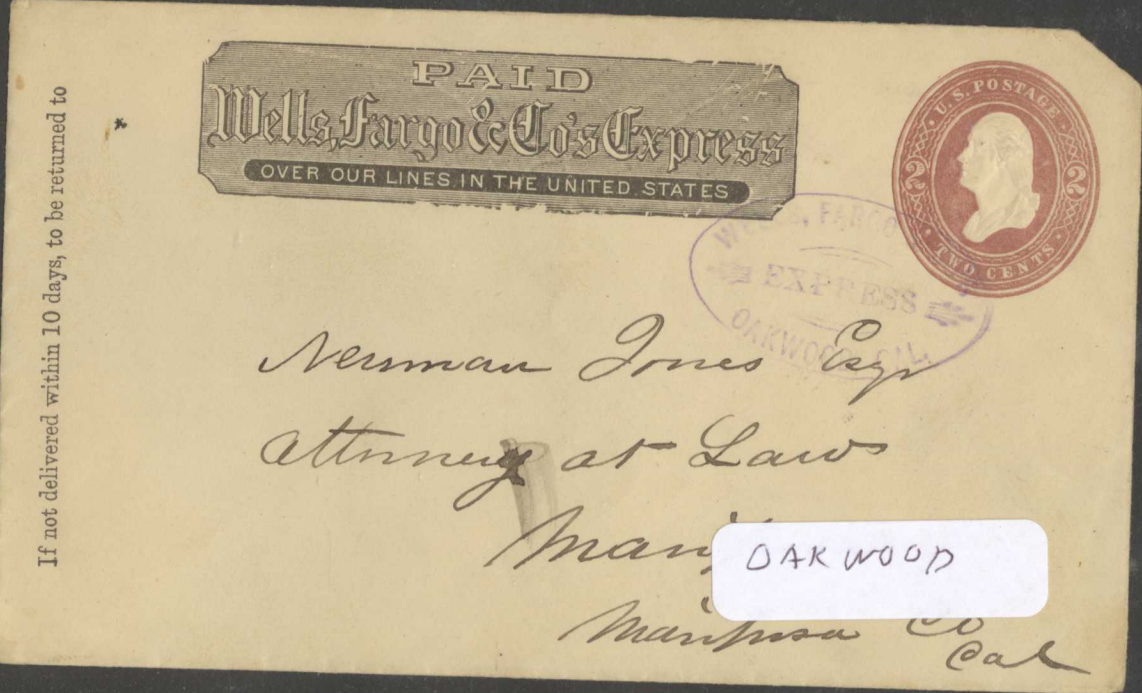 If not delivered within 10 days, to be returned to
PAID
Wells, Fargo & Co's Express
OVER OUR LINES IN THE UNITED STATES
U.S. POSTAGE
2 2
TWO CENTS
WELLS, FARGO
EXPRESS
OAKWOOD, CAL.
Newman Jones Esqr
Attorney at Law
OAKWOOD
Mariposa Co
Cal